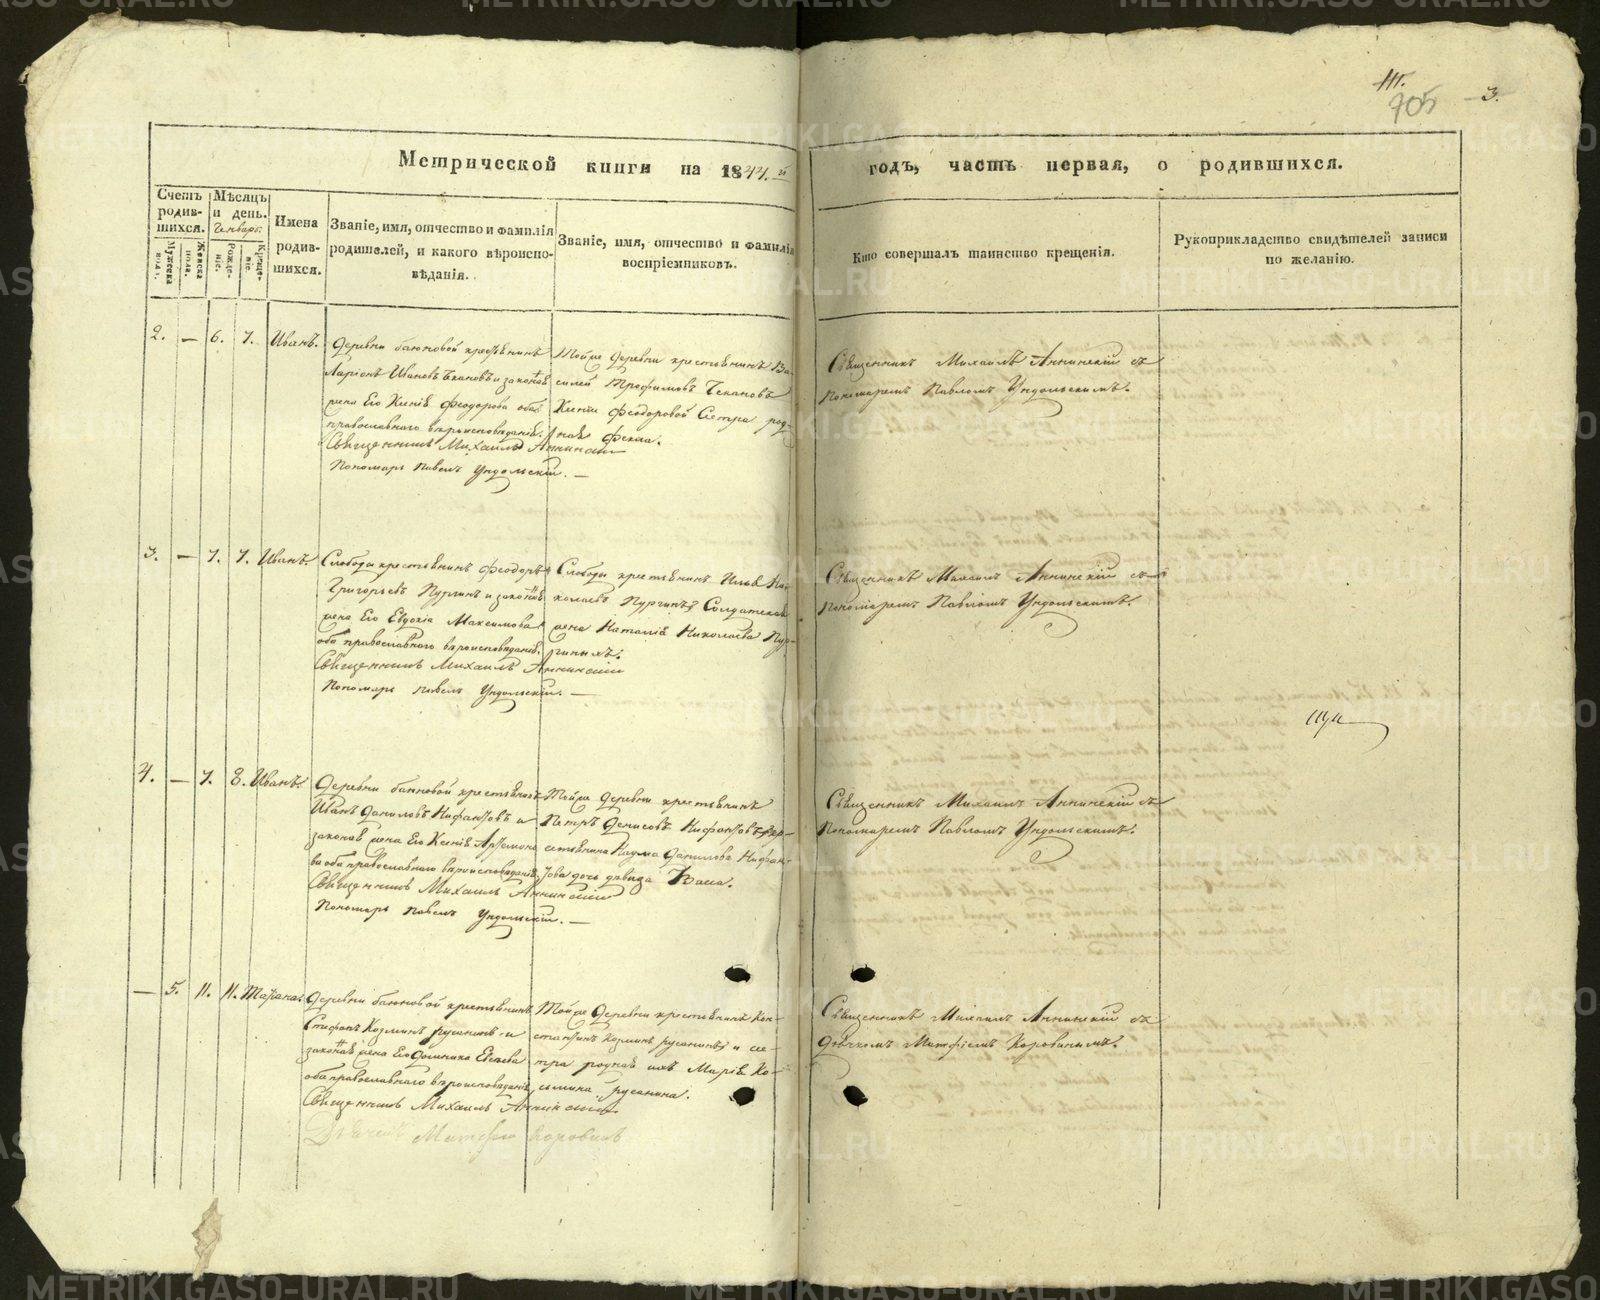 705
3.
Метрической книги на 1844.й годъ, часть первая, о родившихся.
Счетъ родившихся.
Мужеска пола.
Женска пола.
Мѣсяцъ и день.
Январь.
Рожденіе.
Крещеніе.
Имена родившихся.
Званіе, имя, отчество и фамилія родителей, и какого вѣроисповѣданія.
Званіе, имя, отчество и фамилія воспріемниковъ.
Кто совершалъ таинство крещенія.
Рукоприкладство свидѣтелей записи по желанію.
2. — 6. 7. Иванъ.
Деревни банновой крестьянинъ
Ларіонъ Ивановъ Чкановъ и законная
жена Его Ксенія Феодорова оба
православнаго вѣроисповѣданія.
Священникъ Михаилъ Аннинскій
Пономарь Павелъ Ундольскій. —
Тойже деревни крестьянинъ Ва-
силей Трофимовъ Чекановъ
Ксеніи Феодоровой Сестра род-
ная Фекла.
Священникъ Михаилъ Аннинскій съ
Пономаремъ Павломъ Ундольскимъ.
3. — 7. 7. Иванъ.
Слободы крестьянинъ Феодоръ
Григорьевъ Пургинъ и законная
жена Его Евдокія Максимова
оба православнаго вѣроисповѣданія.
Священникъ Михаилъ Аннинскій
Пономарь Павелъ Ундольскій. —
Слободы крестьянинъ Илья Ни-
колаевъ Пургинъ Солдатская
жена Наталія Николаева Пур-
гиныхъ.
Священникъ Михаилъ Аннинскій съ
Пономаремъ Павломъ Ундольскимъ.
4. — 7. 8. Иванъ.
Деревни банновой крестьянинъ
Иванъ Даниловъ Нифантовъ и
законная жена Его Ксенія Артемоно-
ва оба православнаго вѣроисповѣданія.
Священникъ Михаилъ Аннинскій
Пономарь Павелъ Ундольскій. —
Тойже деревни крестьянинъ
Петръ Денисовъ Нифантовъ
крестьянина Наума Данилова Нифан-
това дочь дѣвица Васса.
Священникъ Михаилъ Аннинскій съ
Пономаремъ Павломъ Ундольскимъ.
— 5. 11. 11. Татіана.
Деревни банновой крестьянинъ
Стефанъ Козминъ русановъ и
законная жена Его Домника Евсѣева
оба православнаго вѣроисповѣданія
Священникъ Михаилъ Аннинскій
Дьячекъ Матфій Коровинъ
Тойже Деревни крестьянинъ Кон-
стантинъ Козминъ русанинъ и се-
стра родная ихъ Марія Ко-
зьмина русанина.
Священникъ Михаилъ Аннинскій съ
Дьячкомъ Матфіемъ Коровинымъ.
METRIKI.GASO-URAL.RU